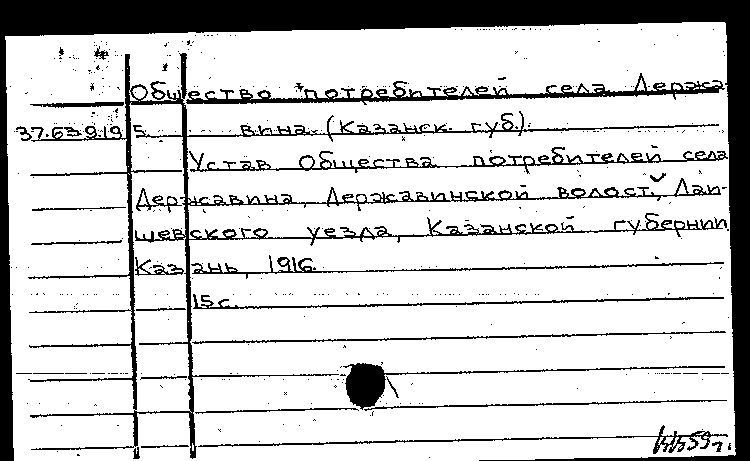 Общество потребителей села Держа-
37.63.9.19 5. вина (Казанск. губ.).
Устав Общества потребителей села
Державина, Державинской волост., Лаи-
шевского уезда, Казанской губернии
Казань, 1916.
15 с.